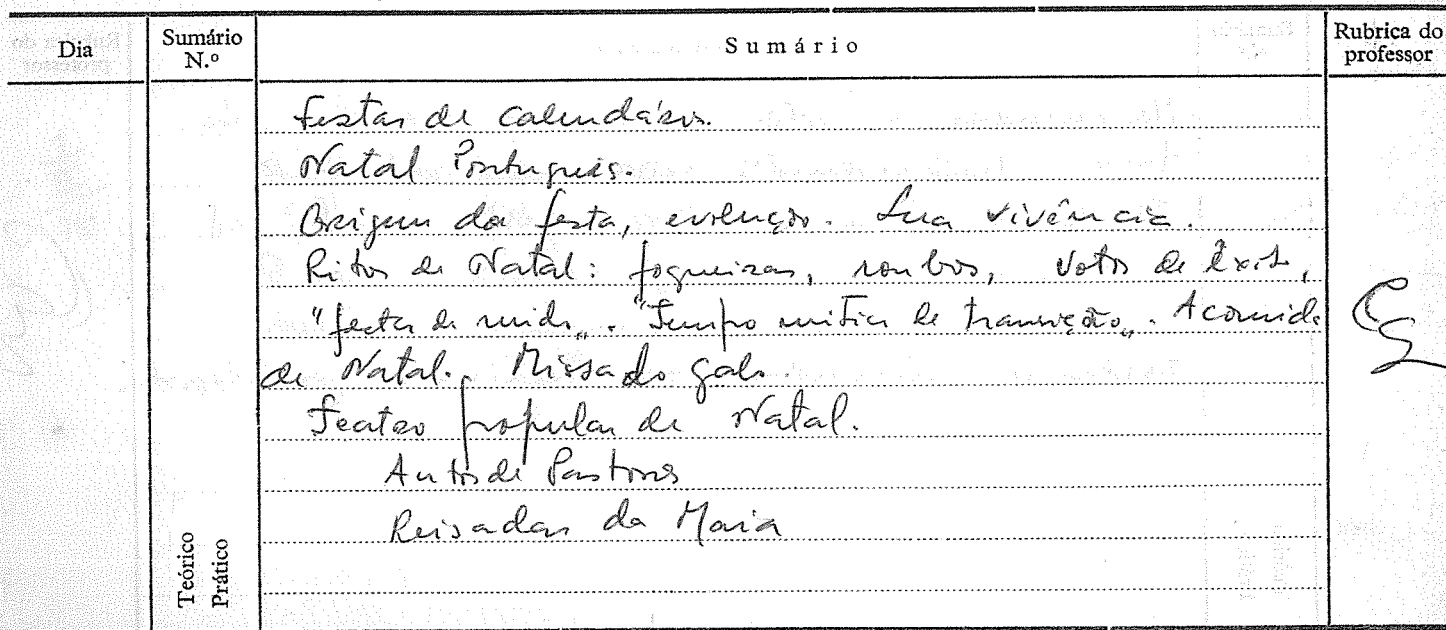 Dia
Sumário N.º
Sumário
Rubrica do professor
Festas de calendário.
Natal Português.
Origem da festa, evolução. Sua vivência.
Ritos de Natal: fogueiras, roubos, votos de êxito,
"festa de ruído". "Tempo mítico de transição". A comida
de Natal. Missa do galo.
Teatro popular de Natal.
Autos de Pastores
Reisadas da Maia
Teórico
Prático